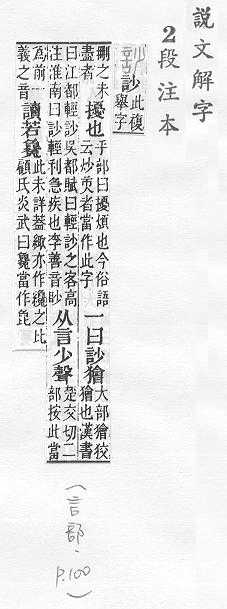 說文解字
2段注本
訬 此複舉字
刪之未盡者 擾也 手部曰擾煩也今俗語云炒者當作此字 一曰訬獪 犬部獪狡獪也漢書
曰江都輕訬吳都賦曰輕訬之客高注淮南曰訬輕利急疾也李善音眇 从言少聲 楚交切二部按此當
爲前一義之音 讀若毚 此未詳葢緅亦作纔之比顧氏炎武曰毚當作㲋
(言部. P.100)